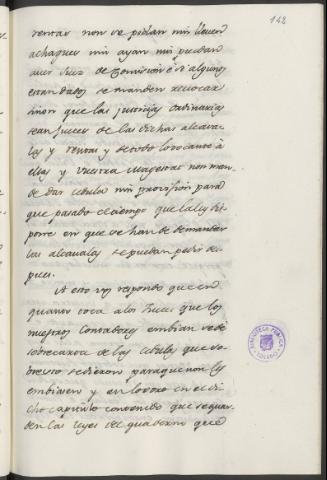 142
rentar non se pidan nin lleven
achaques nin ayan nin puedan
aver Juez de Comision é si algunos
estan dados se manden revocar
sinon que las justicias ordinarias
sean Jueces de las dichas alcava-
las y rentas y de todo lo tocante á
ellas y Vuestra Magestad non man-
de dar cedula nin provision para
que pasado el tiempo que la ley dis-
pone en que se han de demandar
las alcavalas se puedan pedir des-
pues.
A esto vos respondo que en
quanto toca a los Jueces que los
nuestros Contadores embian se dé
sobrecarta de las cedulas que so-
bre esto se dieron para que non los
embiasen y en lo otro en el di-
cho capitulo contenido que se guar-
den las leyes del quaderno que
BIBLIOTECA PUBLICA
TOLEDO